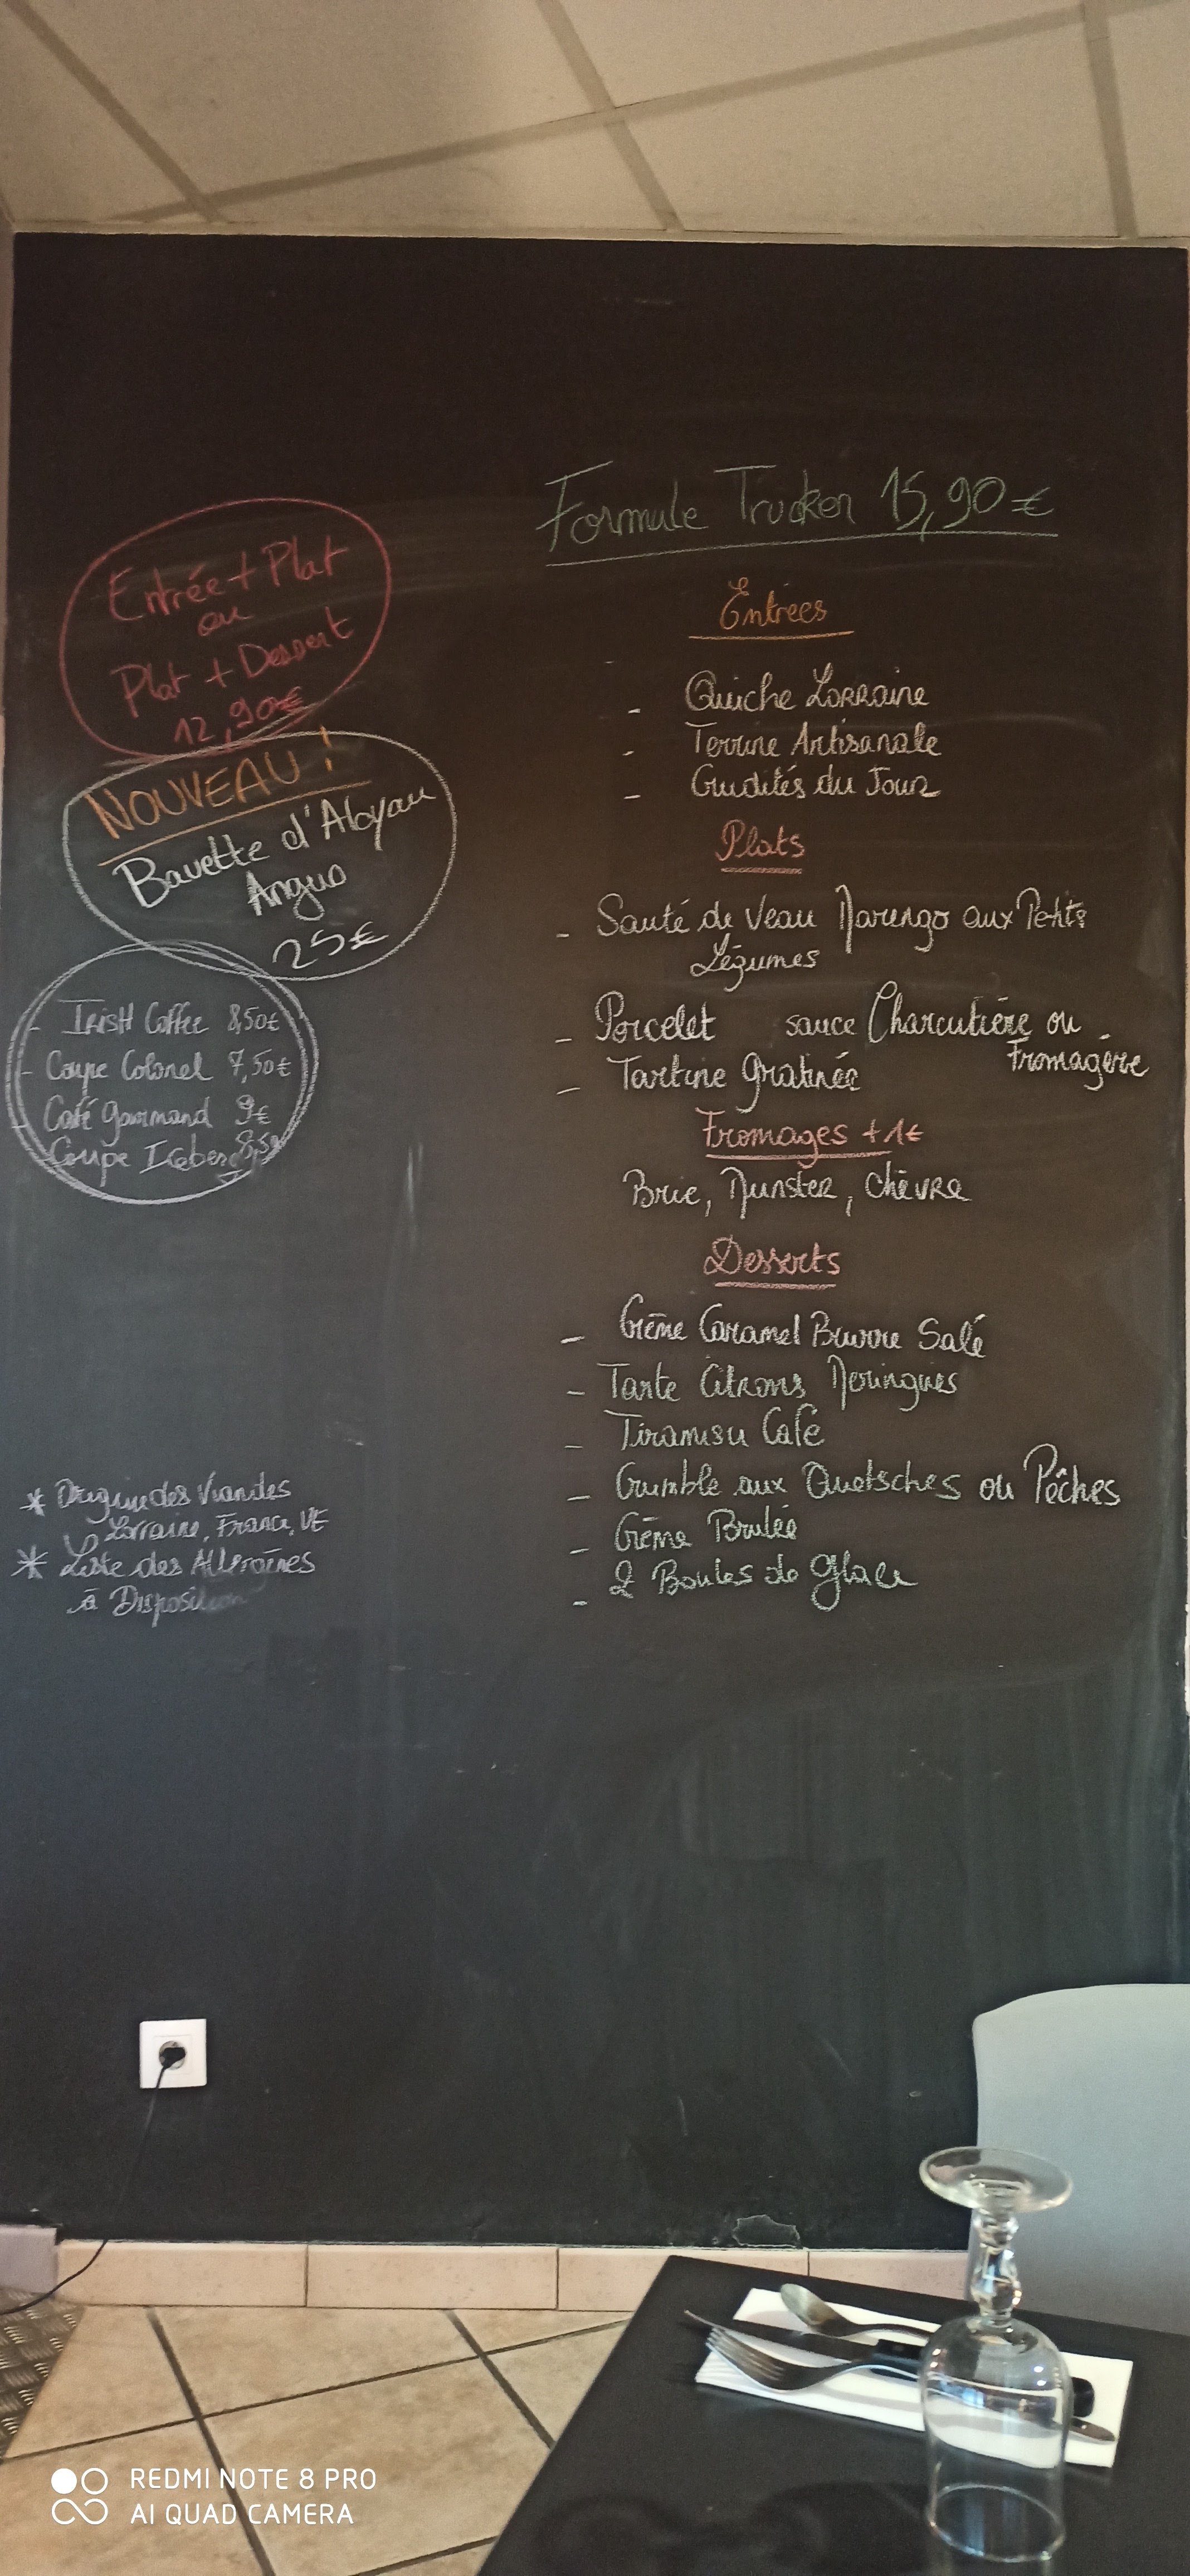 Formule Trucker 15,90€
Entrées
- Quiche Lorraine
- Terrine Artisanale
- Crudités du Jour
Plats
- Sauté de Veau Marengo aux Petits
Légumes
- Porcelet sauce Charcutière ou
Fromagère
- Tartine gratinée
Fromages +1€
Brie, Munster, Chèvre
Desserts
- Crème Caramel Beurre Salé
- Tarte Citrons Meringues
- Tiramisu Café
- Crumble aux Quetsches ou Pêches
- Crème Brulée
- 2 Boules de glace
Entrée + Plat
ou
Plat + Dessert
12,90€
NOUVEAU !
Bavette d'Aloyau
Angus
25€
- Irish Coffee 8,50€
- Coupe Colonel 7,50€
- Café gourmand 9€
Coupe Iceberg 8,50
* Origine des Viandes
Lorraine, France, UE
* Liste des Allergènes
à Disposition
REDMI NOTE 8 PRO
AI QUAD CAMERA